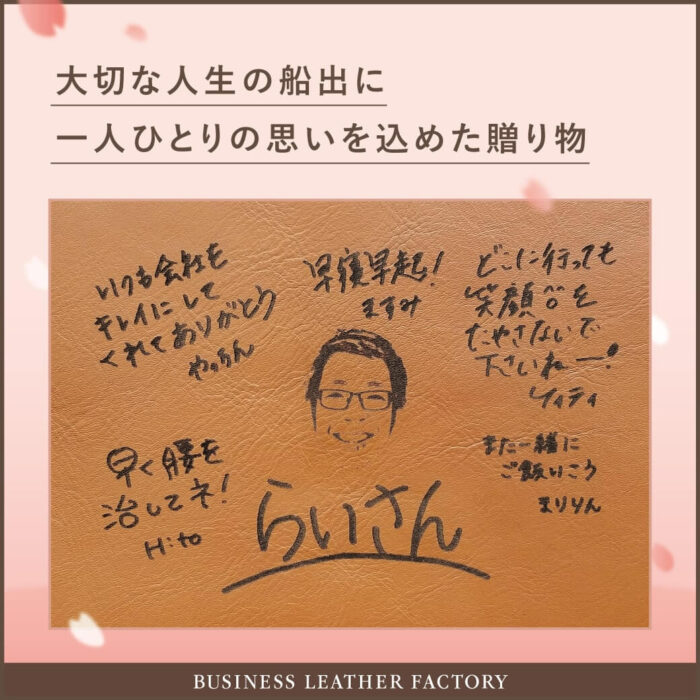 大切な人生の船出に
一人ひとりの思いを込めた贈り物
いつも会社を
キレイにして
くれてありがとう
やっちん
早寝早起!
ますみ
どこに行っても
笑顔を
たやさないで
下さいねー!
ケイティ
早く腰を
治してネ!
Hito
また一緒に
ご飯いこう
まりりん
らいさん
BUSINESS LEATHER FACTORY